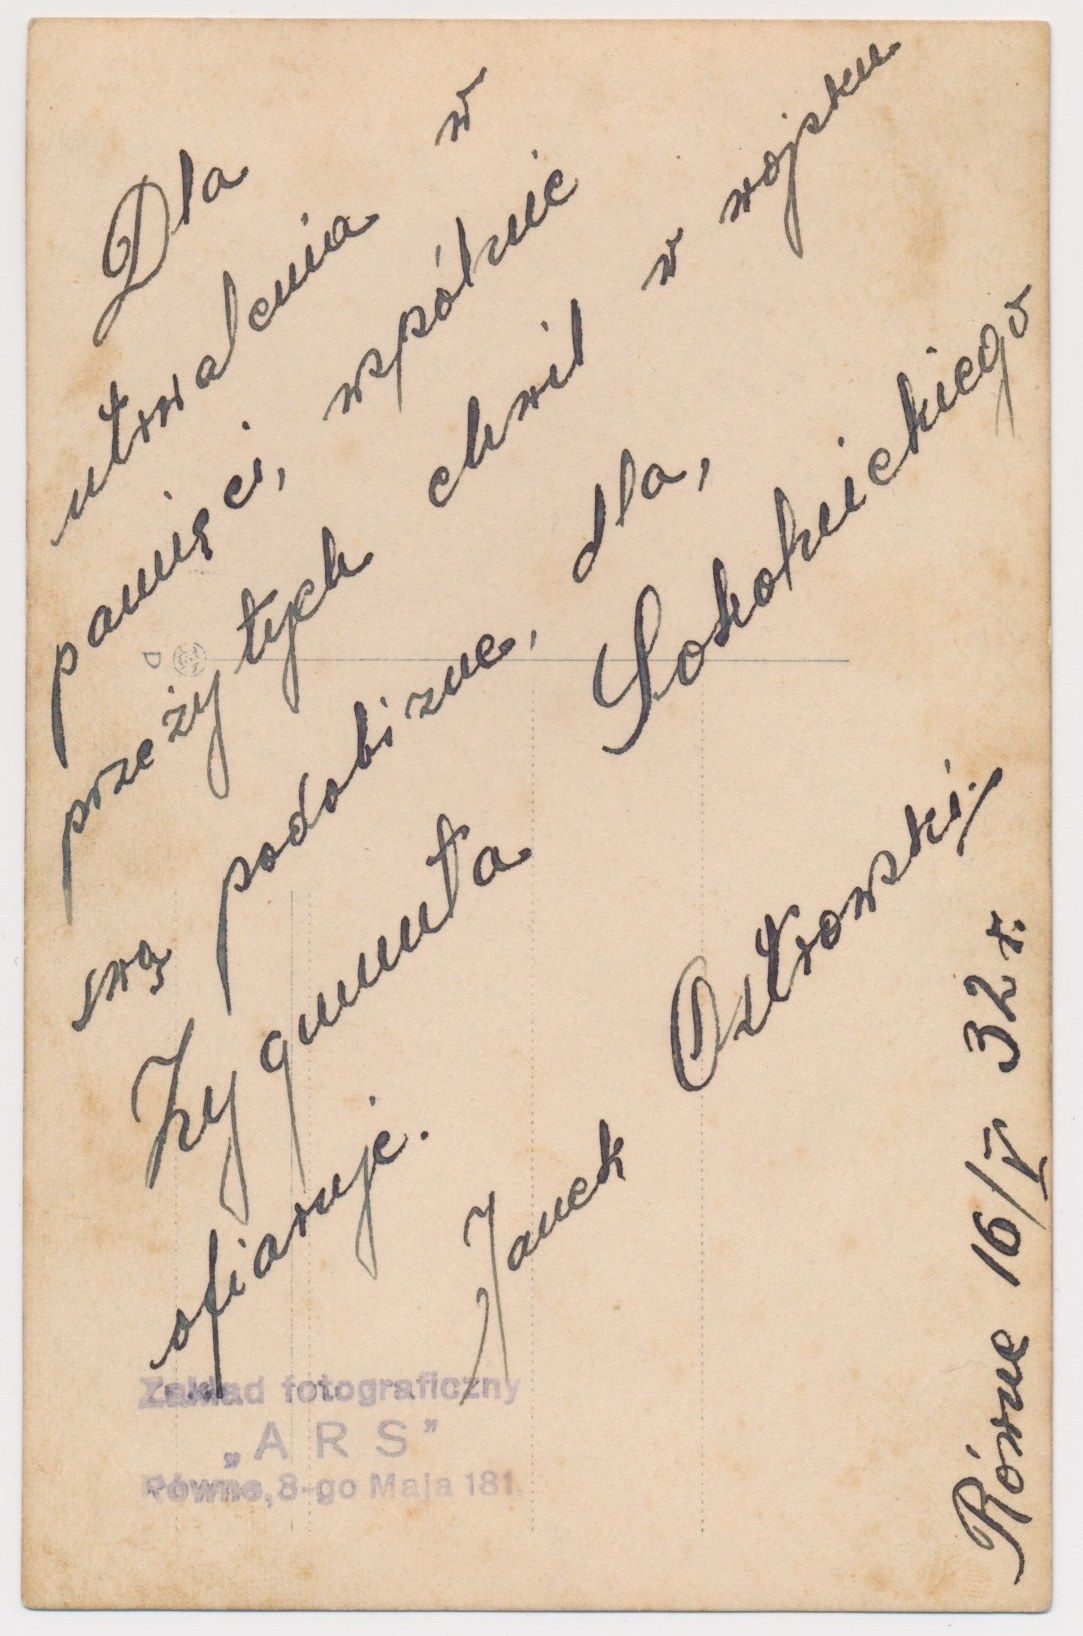 Dla
utrwalenia w
pamięci, wspólnie
przeżytych chwil w wojsku
swą podobiznę, dla,
Zygmunta Sokolnickiego
ofiaruje.
Janek Ostrowski.
Równe 16/V 32 r.
Zakład fotograficzny
„ARS”
Równe, 8-go Maja 181.